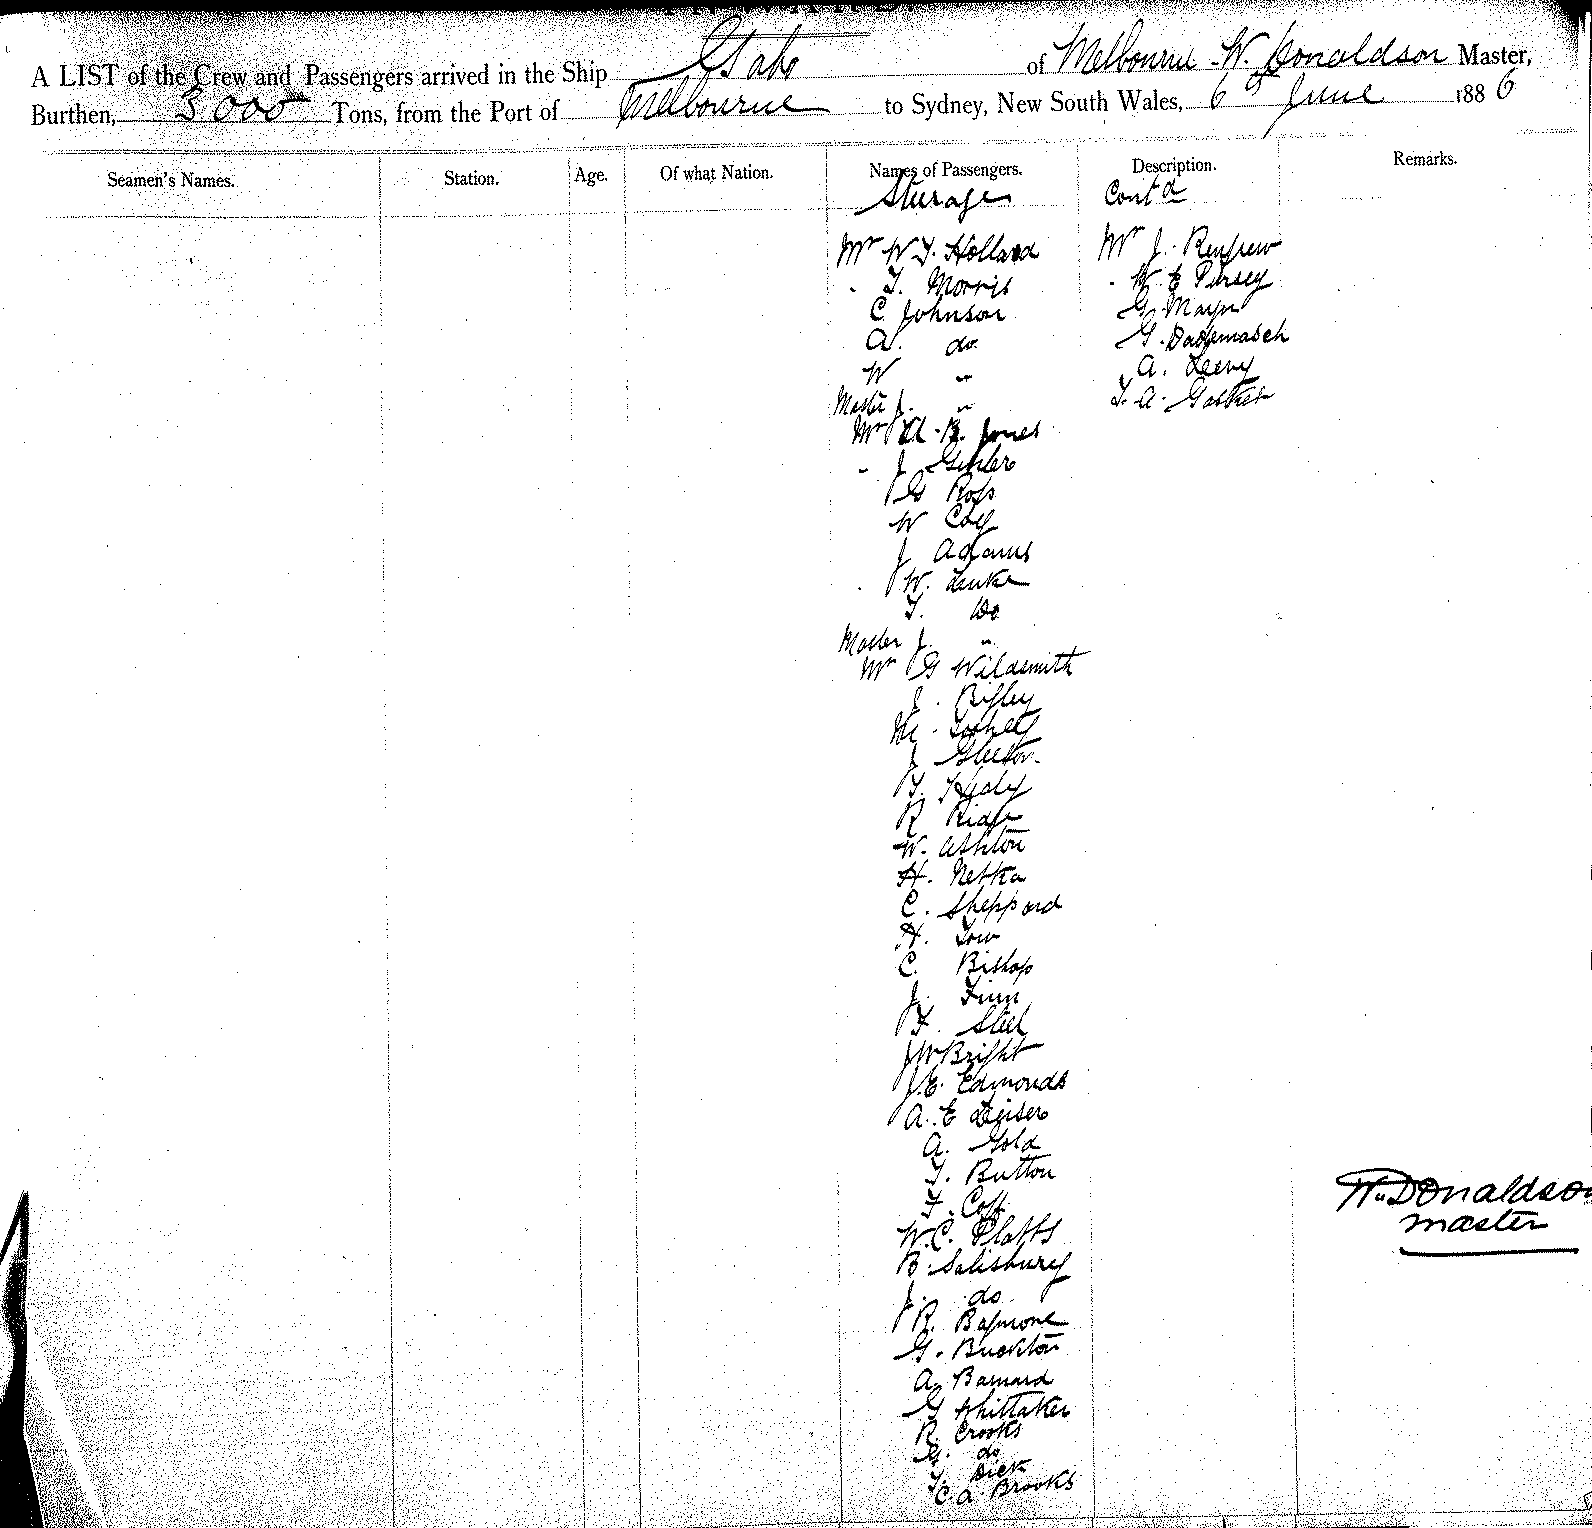 A LIST of the Crew and Passengers arrived in the Ship Gabo of Melbourne W. Donaldson Master,
Burthen, 3000 Tons, from the Port of Melbourne to Sydney, New South Wales, 6th June 1886
Seamen's Names. Station. Age. Of what Nation. Names of Passengers. Description. Remarks.
Steerage Cont'd
Mr W T. Holland Mr J. Renfrew
" T. Morris " W E Pursey
C Johnson G. Mayn
A. do. G.
W " A. Leevy
Master J. " T. A. Gasket
Mr A. B. Jones
" J
G Ross
W Coy
J Adams
W. Luke
T. Do
Master J. "
Mr G Wildsmith
J. Rigley
J
T. Healy
R Ridge
W. Ashton
H. Netka
C. Sheppard
H. Low
C. Bishop
J. Finn
F. Steel
J W Bright
J. E. Edmonds
A. E
A. Gold
T. Button
F.
W. C. Platts
B. Salisbury
J. do
R.
G. Buckton
A. Barnard
G Whittaker
R. Crooks
G. do
T. Dick
C. A Brooks
W. Donaldson
master